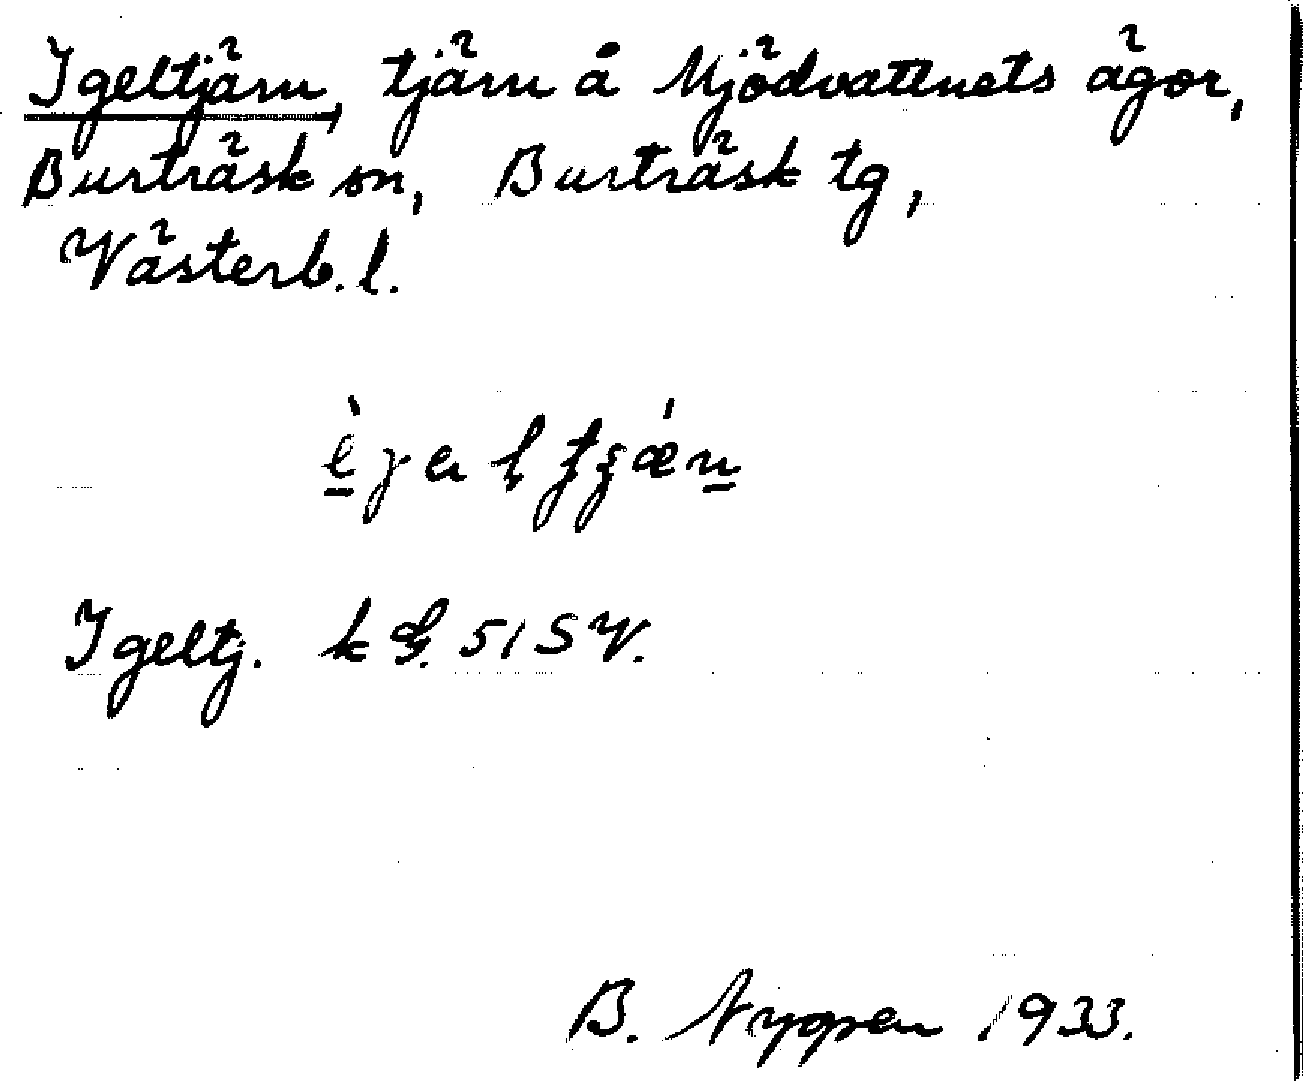 Igeltjärn, tjärn å Mjödvattnets ägor,
Burträsk sn, Burträsk tg,
Västerb. l.
Igeltj. k G. 51 SV.
B. 1933.